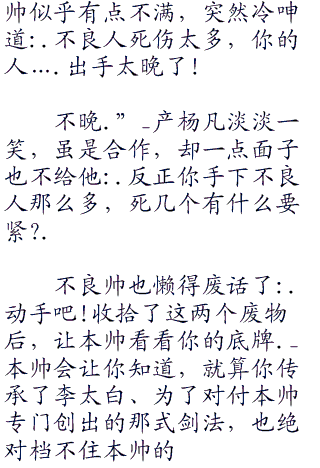 帅似乎有点不满，突然冷呻
道:.不良人死伤太多，你的
人....出手太晚了!
不晚.”_产杨凡淡淡一
笑，虽是合作，却一点面子
也不给他:.反正你手下不良
人那么多，死几个有什么要
紧?.
不良帅也懒得废话了:.
动手吧!收拾了这两个废物
后，让本帅看看你的底牌._
本帅会让你知道，就算你传
承了李太白、为了对付本帅
专门创出的那式剑法，也绝
对档不住本帅的